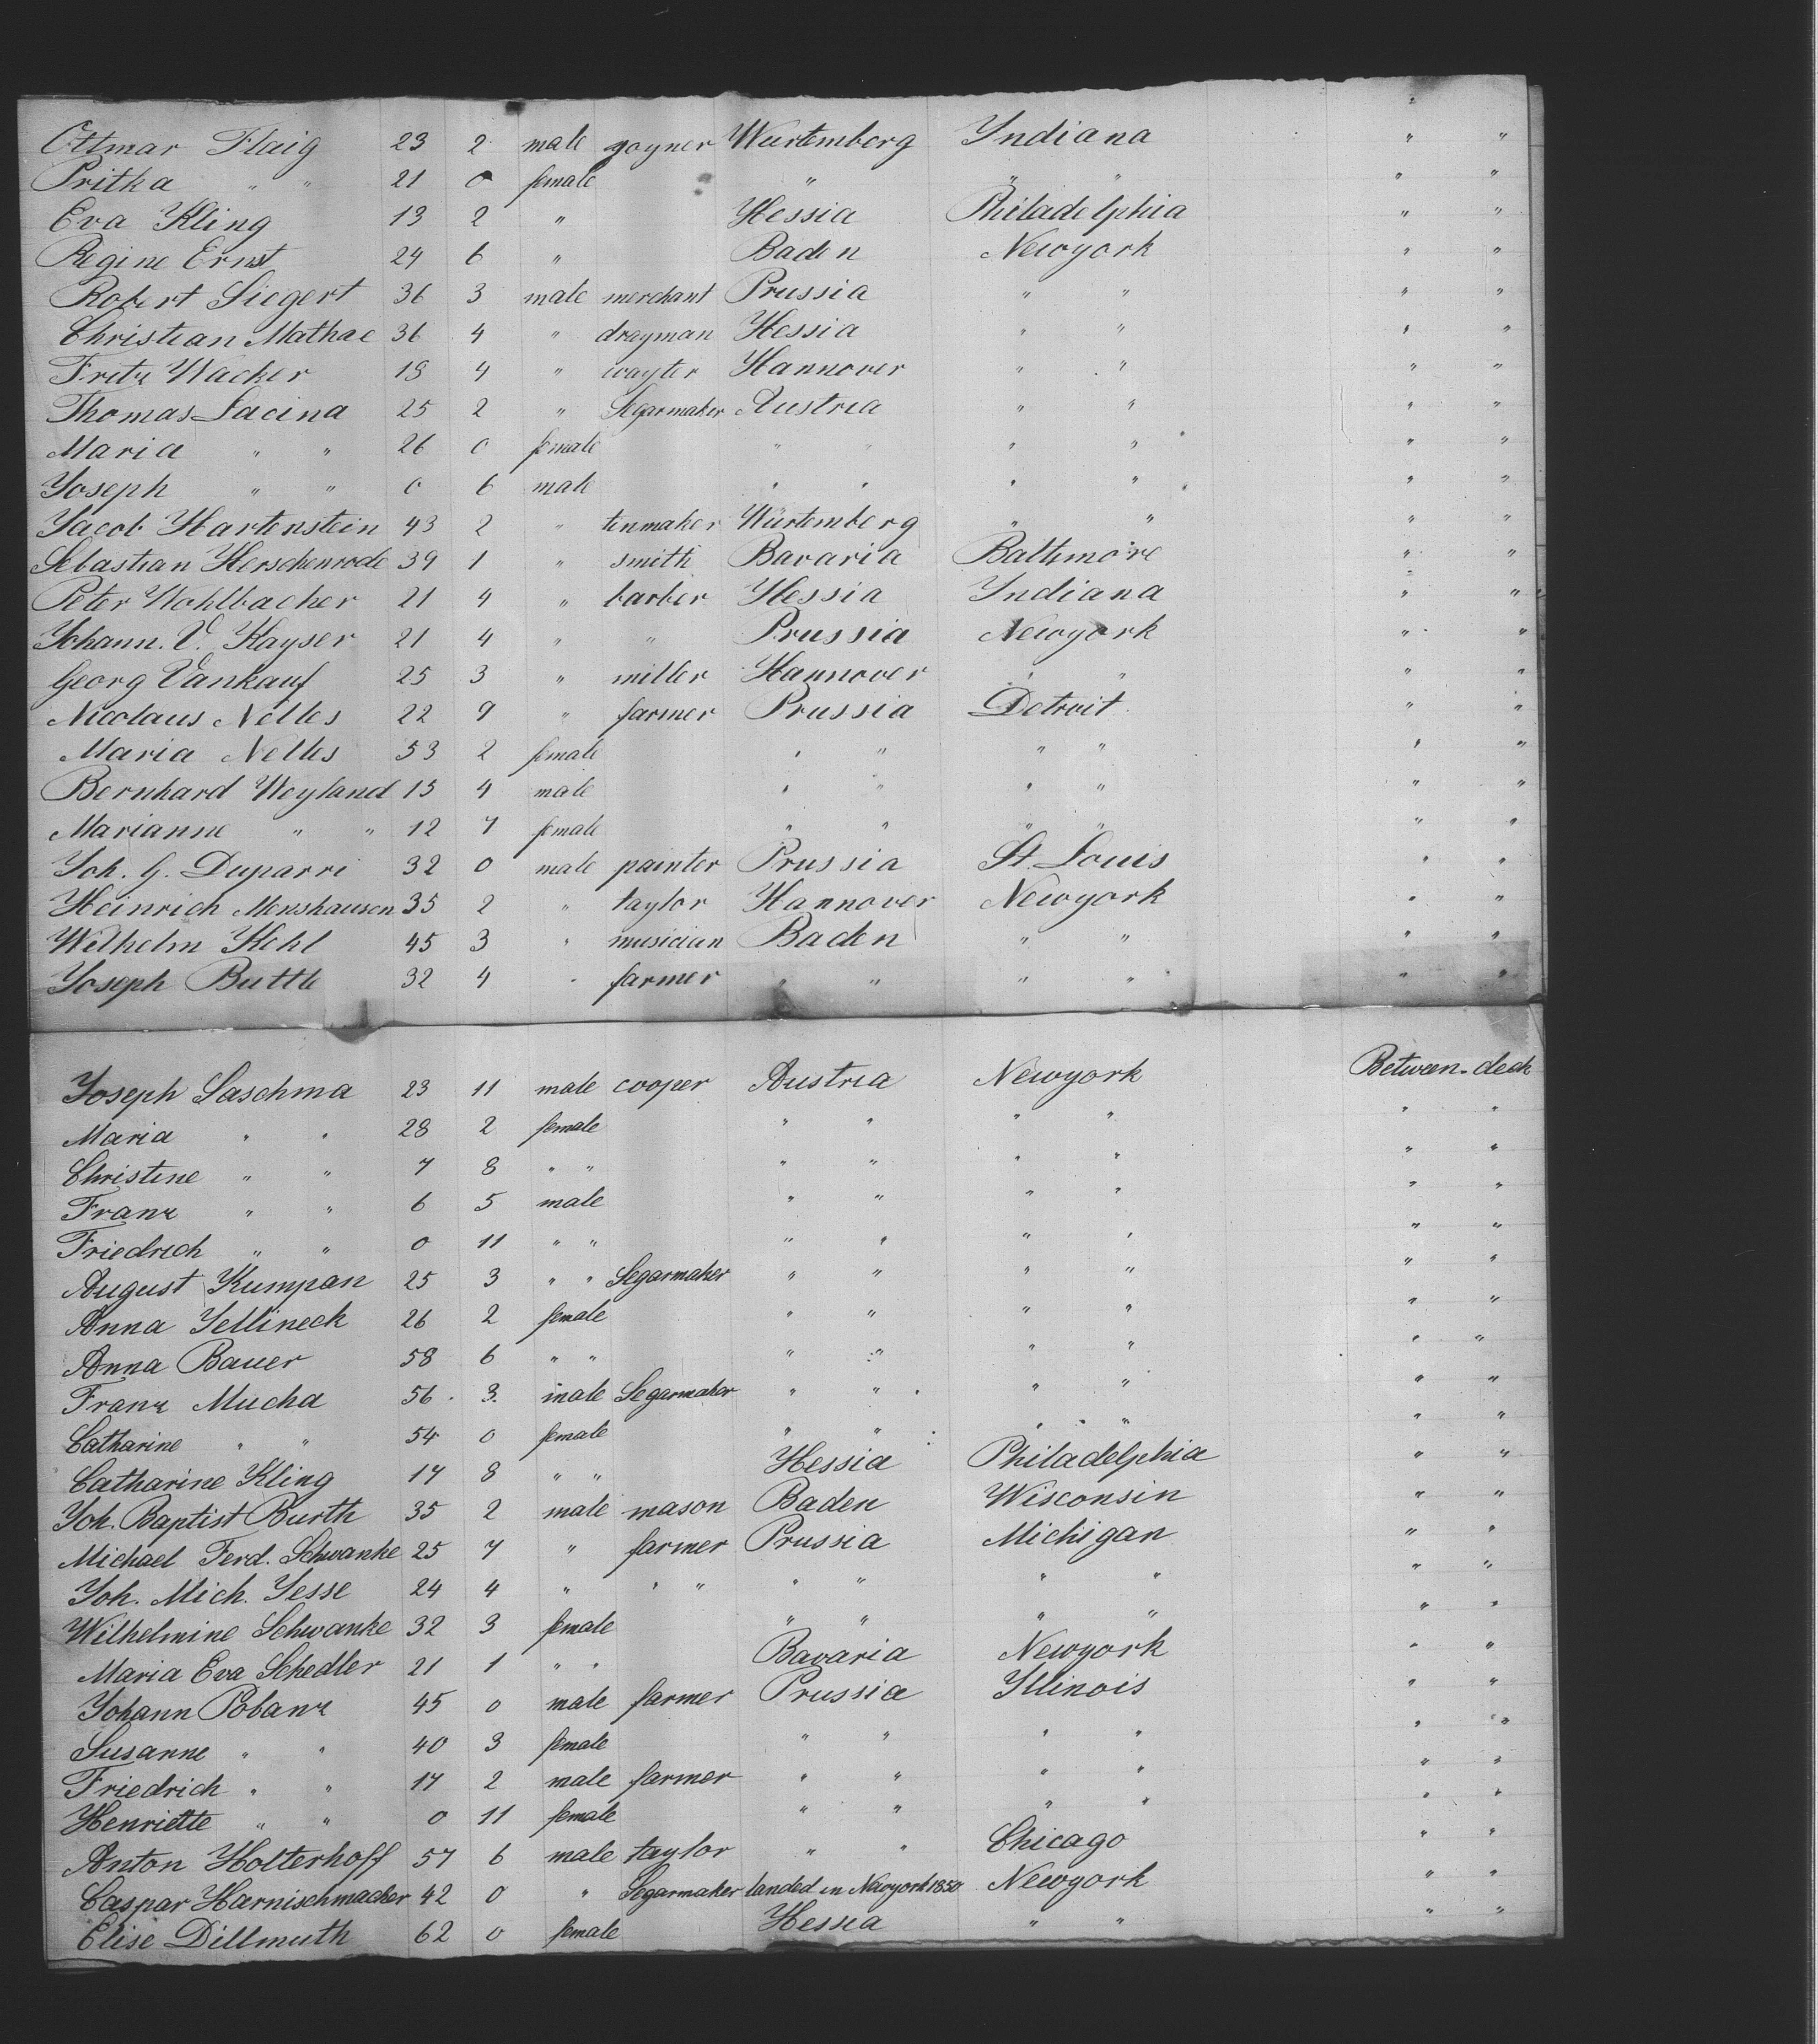 Ottmar Flaig 23 2 male yoyner Würtemberg Indiana " "
Pritka " " 21 0 female " " " " "
Eva Kling 19 2 " Hessia Philadelphia " "
Regine Ernst 24 6 " Baden Newyork " "
Robert Siegert 36 3 male merchant Prussia " " " "
Christian Mathae 36 4 " drayman Hessia " " " "
Fritz Wacker 19 4 " wayter Hannover " " " "
Thomas Lacina 25 2 " Segarmaker Austria " " " "
Maria " " 26 0 female " " " " " "
Yoseph " " 0 6 male " " " " " "
Yacob Hartenstein 43 2 " tenmaker Würtemberg " " " "
Sebastian Herschenrode 39 1 " smith Bavaria Baltimore " "
Peter Wohlbacher 21 4 " barbir Hessia Indiana " "
Yohann. V. Kayser 21 4 " " Prussia Newyork " "
Georg Vankauf 25 3 " miller Hannover " " " "
Nicolaus Nelles 22 9 " farmer Prussia Detroit " "
Maria Nelles 53 2 female " " " " " "
Bernhard Weyland 15 4 male " " " " " "
Marianne " " 12 7 female " " " " " "
Yoh. G. Duparri 32 0 male painter Prussia St. Louis " "
Heinrich Menshausen 35 2 " taylor Hannover Newyork " "
Wilhelm Kohl 45 3 " musician Baden " " " "
Yoseph Buttle 32 4 " farmer " " " " " "
Yoseph Laschma 23 11 male cooper Austria Newyork Between-deck
Maria " " 28 2 female " " " " " "
Christine " " 7 8 " " " " " " " "
Franz " " 6 5 male " " " " " "
Friedrich " " 0 11 " " " " " " " "
August Kumpan 25 3 " " Segarmaker " " " " " "
Anna Yellineck 26 2 female " " " " " "
Anna Bauer 58 6 " " " " " " " "
Franz Mucha 56 3. male Segarmaker " " " " " "
Catharine " " 54 0 female " " " " " "
Catharine Kling 17 8 " " Hessia Philadelphia " "
Yoh. Baptist Burth 35 2 male mason Baden Wisconsin " "
Michael Ferd. Schwanke 25 7 " farmer Prussia Michigan " "
Yoh. Mich. Yesse 24 4 " " " " " " " " "
Wilhelmine Schwanke 32 3 female " " " " " "
Maria Eva Schedler 21 1 " " Bavaria Newyork " "
Yohann Pobanz 45 0 male farmer Prussia Yllinois " "
Susanne " " 40 3 female " " " " " "
Friedrich " " 17 2 male farmer " " " " " "
Henriette " " 0 11 female " " " " " "
Anton Holterhoff 57 6 male taylor " " Chicago " "
Caspar Harnischmacher 42 0 " Segarmaker landed in Newyork 1850 Newyork " "
Elise Dillmuth 62 0 female Hessia " " " "